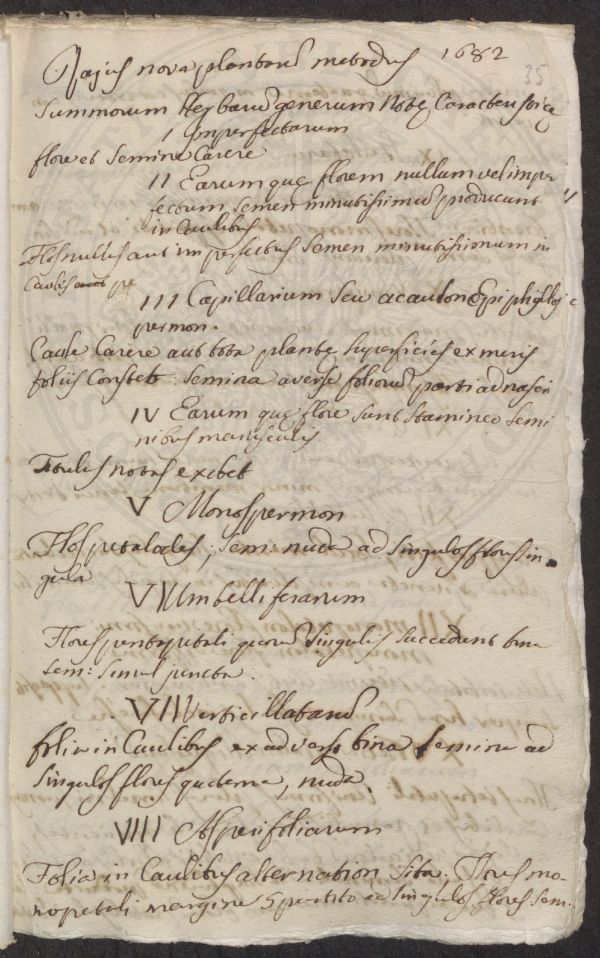 Rajus nova plantarū methodus 1682
35
Summorum Herbarū generum Notę Caracteristicę
I Imperfectarum
flore et Semine Carere
II Earum quę florem nullum vel imper
fectum, semen minutissimū producunt
in Caulibus
Flos nullus aut imperfectus Semen minutissimum in
Caulis
III Capillarium Seu acaulon Epiphyllo
spermon.
Caule Carere aut tota plantę superficies ex meris
foliis Constet: Semina aversę foliorū parti adnasci
IV Earum quę flore sunt Stamineo Semi
nibus maiusculis
Titulus notas exibet
V Monospermon
Flos petalodes, sem: nuda ad Singulos flores sin
gula
VI Umbelliferarum
Flores pentapetali quorū Singulis succedunt bina
sem: simul juncta.
VII Verticillatarū
folia in Caulibus ex adverso bina Semina ad
Singulos flores quaterna, nuda.
VIII Asperifoliarum
Folia in Caulibus alternation Sita. Flores mo-
nopetali margine 5 partito ad Singulos flores sem.